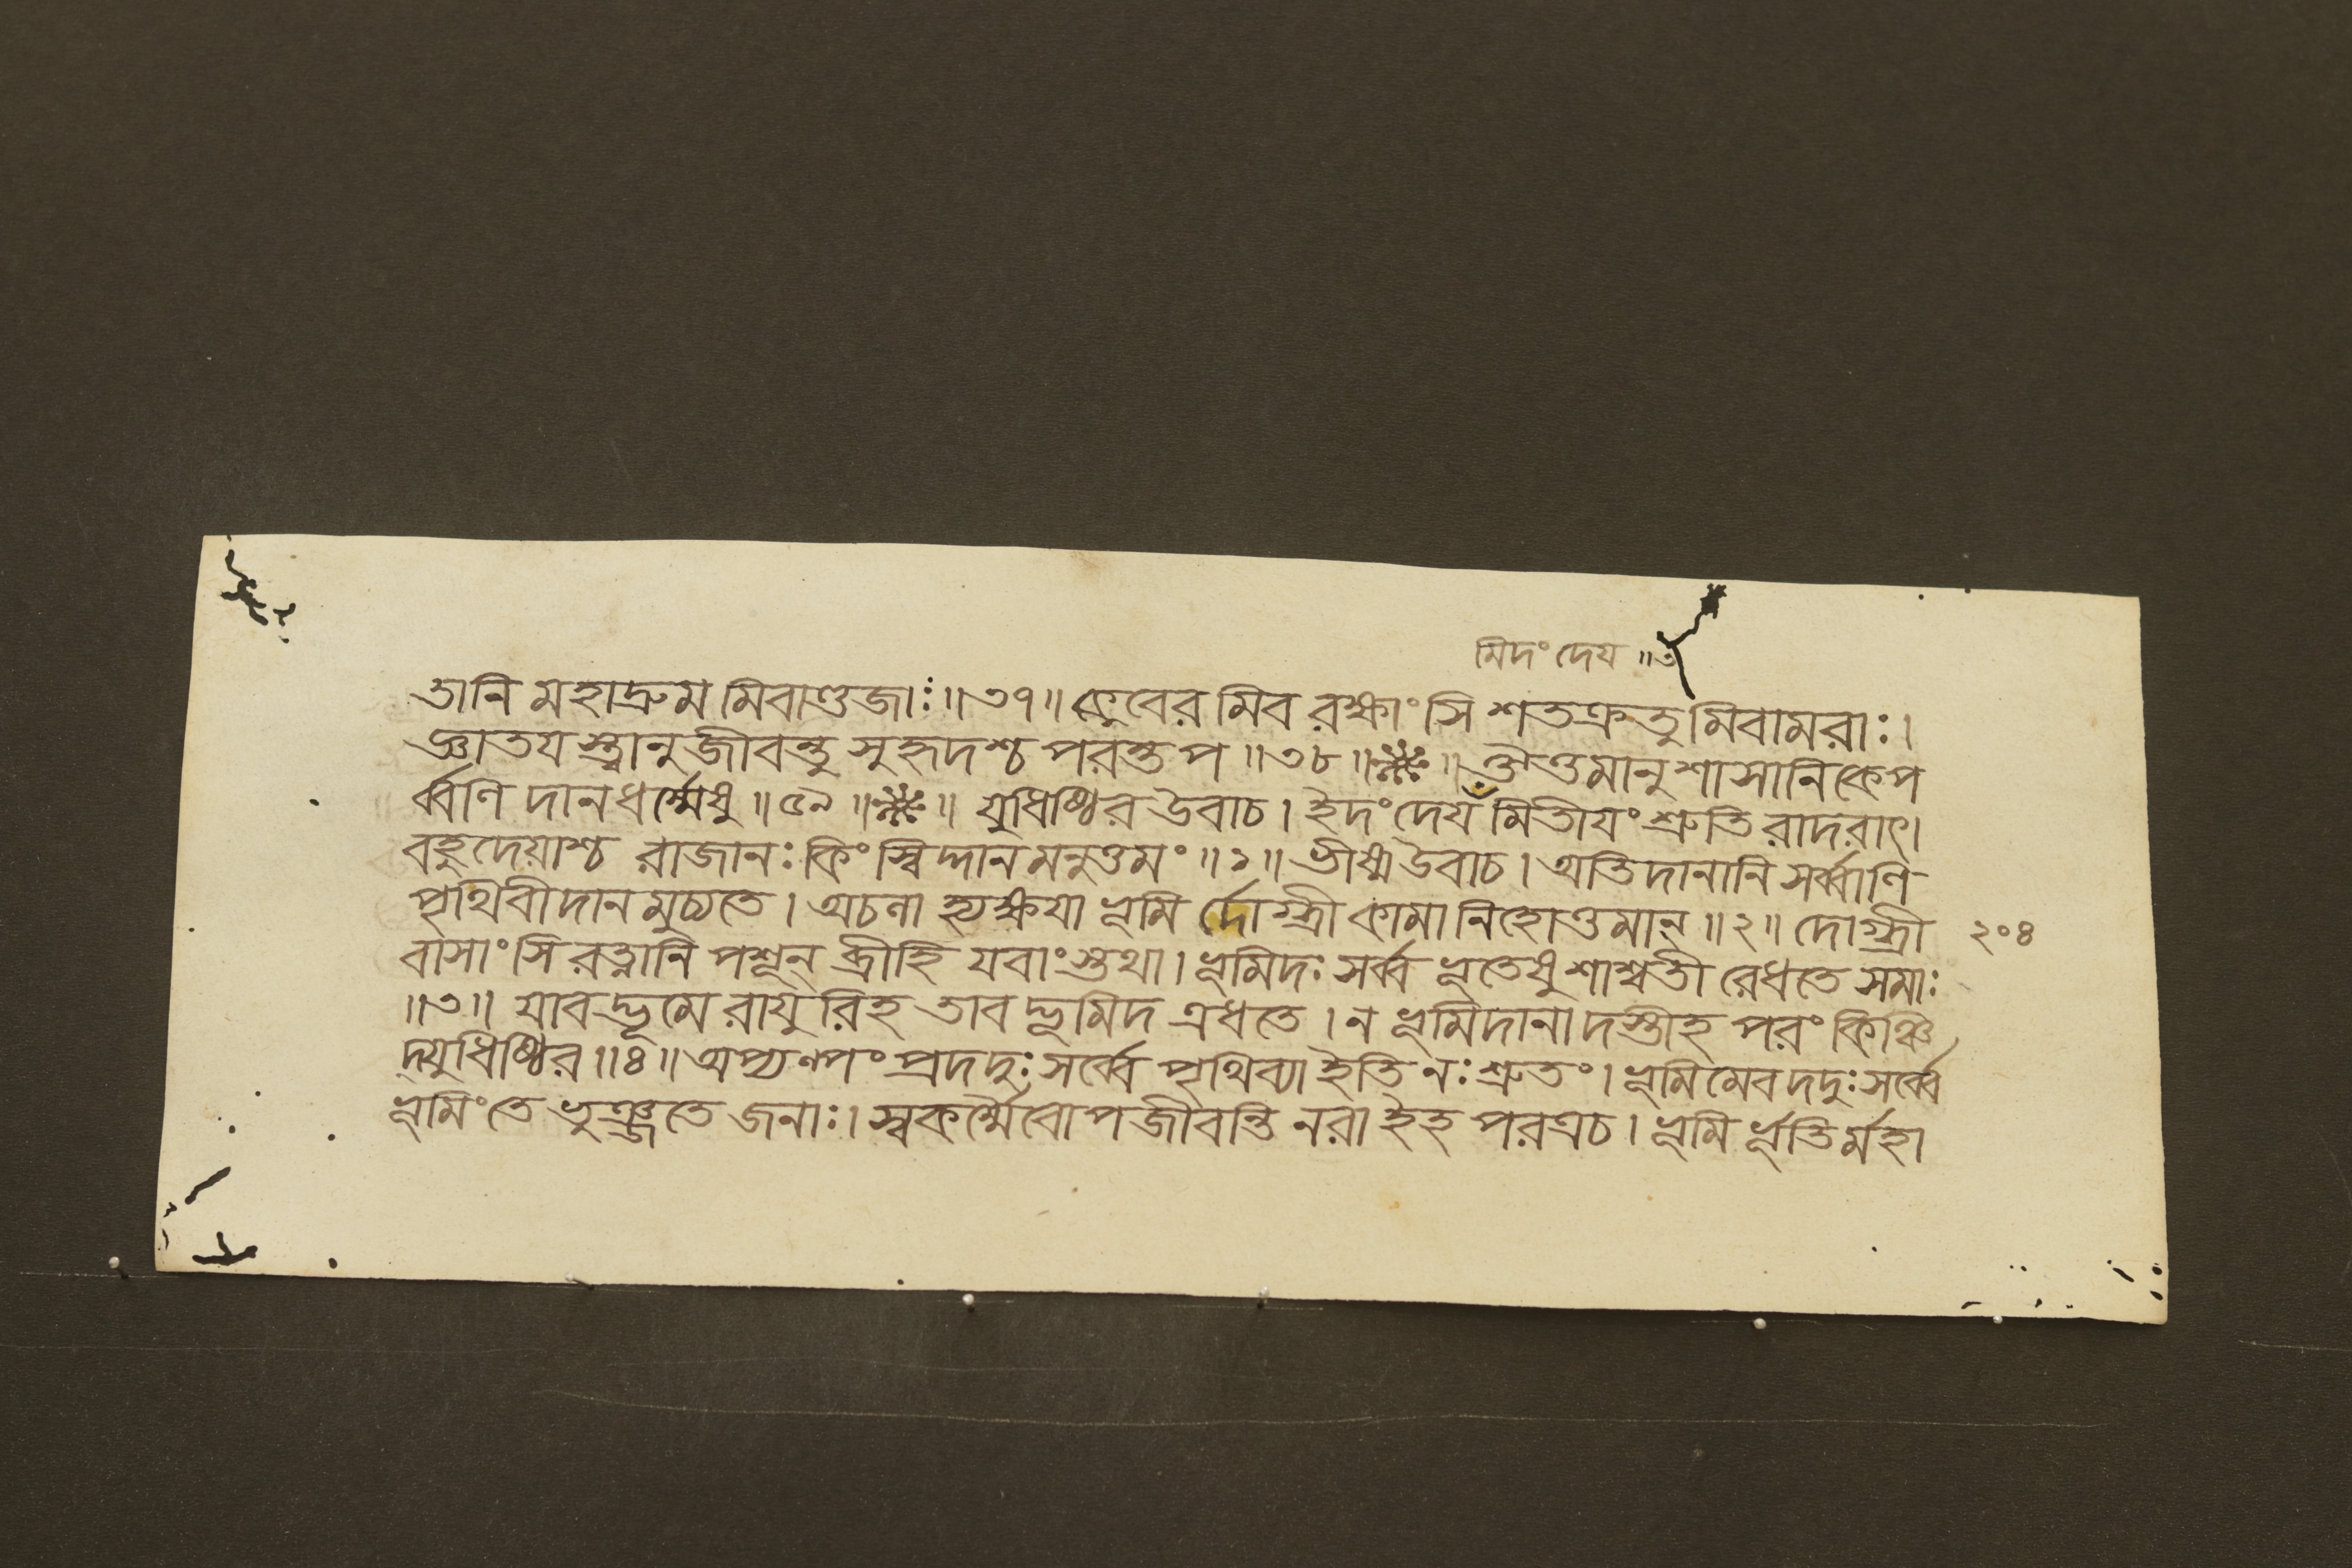 মিদং দেয ॥৩
তানি মহাদ্রুম মিবাণ্ডজাঃ ॥৩৭॥ কুবের মিব রক্ষাংসি শতক্রতু মিবামরাঃ।
জ্ঞাতয স্ত্বানুজীবন্তু সুহৃদশ্চ পরন্তপ ॥৩৮॥ ॥ ঔত্তমানুশাসানিকেপ
র্ব্বণি দানধর্ম্মেষু ॥৫৯॥ ॥ যুধিষ্ঠির উবাচ। ইদং দেয মিতীযং শ্রুতি রাদরাৎ।
বহুদেয়াশ্চ রাজানঃ কিং স্বিদ্দান মনুত্তমং ॥১॥ ভীষ্ম উবাচ। অতি দানানি সর্ব্বাণি
পৃথিবীদান মুচ্যতে। অচলা হ্যক্ষযা ভূমি র্দোগ্ধ্রী কামা নিহোত্তমান্ ॥২॥ দোগ্ধ্রী
২০৪
বাসাংসি রত্নানি পশূন্ ব্রীহি যবাংস্তথা। ভূমিদঃ সর্ব্ব ভূতেষু শাশ্বতী রেধতে সমাঃ
॥৩॥ যাবদ্ভূমে রাযু রিহ তাবদ্ভূমিদ এধতে। ন ভূমিদানা দস্তীহ পরং কিঞ্চি
দ্যুধিষ্ঠির ॥৪॥ অপ্যল্পং প্রদদুঃ সর্ব্বে পৃথিব্যা ইতি নঃ শ্রুতং। ভূমিমেব দদুঃ সর্ব্বে
ভূমিং তে ভুঞ্জতে জনাঃ। স্বকর্ম্মৈবোপজীবন্তি নরা ইহ পরত্রচ। ভূমি র্ভূতি র্মহা